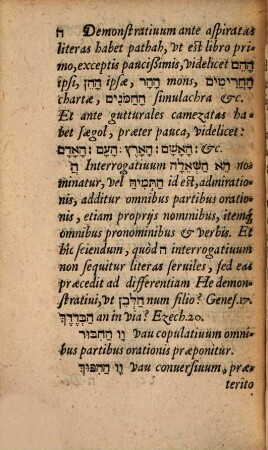 ה Demonstratiuum ante aspiratas
literas habet pathah, vt est libro pri-
mo, exceptis paucißimis, videlicet הָהֵם
ipsi, הָהֵן ipsæ, הָהָר mons, הָחֲרִיטִים
chartæ, הָחַמָּנִים simulachra &c.
Et ante gutturales camezatas ha-
bet sægol, præter pauca, videlicet:
הָאָדָם: הָעָם: הָאָרֶץ: הָאָשָׁם: &c.
הֲ Interrogatiuum הֵא הַשְּׁאֵלָה no-
minatur, vel הַתְּמִיהָ id est, admiratio-
nis, additur omnibus partibus oratio-
nis, etiam proprijs nominibus, itemq́
omnibus pronominibus & verbis. Et
hîc sciendum, quòd ה interrogatiuum
non sequitur literas seruiles, sed eas
præcedit ad differentiam He demon-
stratiui, vt הַלְּבֶן num filio? Genes. 17.
הַבְּדֶרֶךְ an in via? Ezech. 20.
וָו הַחִבּוּר vau copulatiuum omni-
bus partibus orationis præponitur.
וָו הַהִפּוּךְ vau conuersiuum, præ-
terito